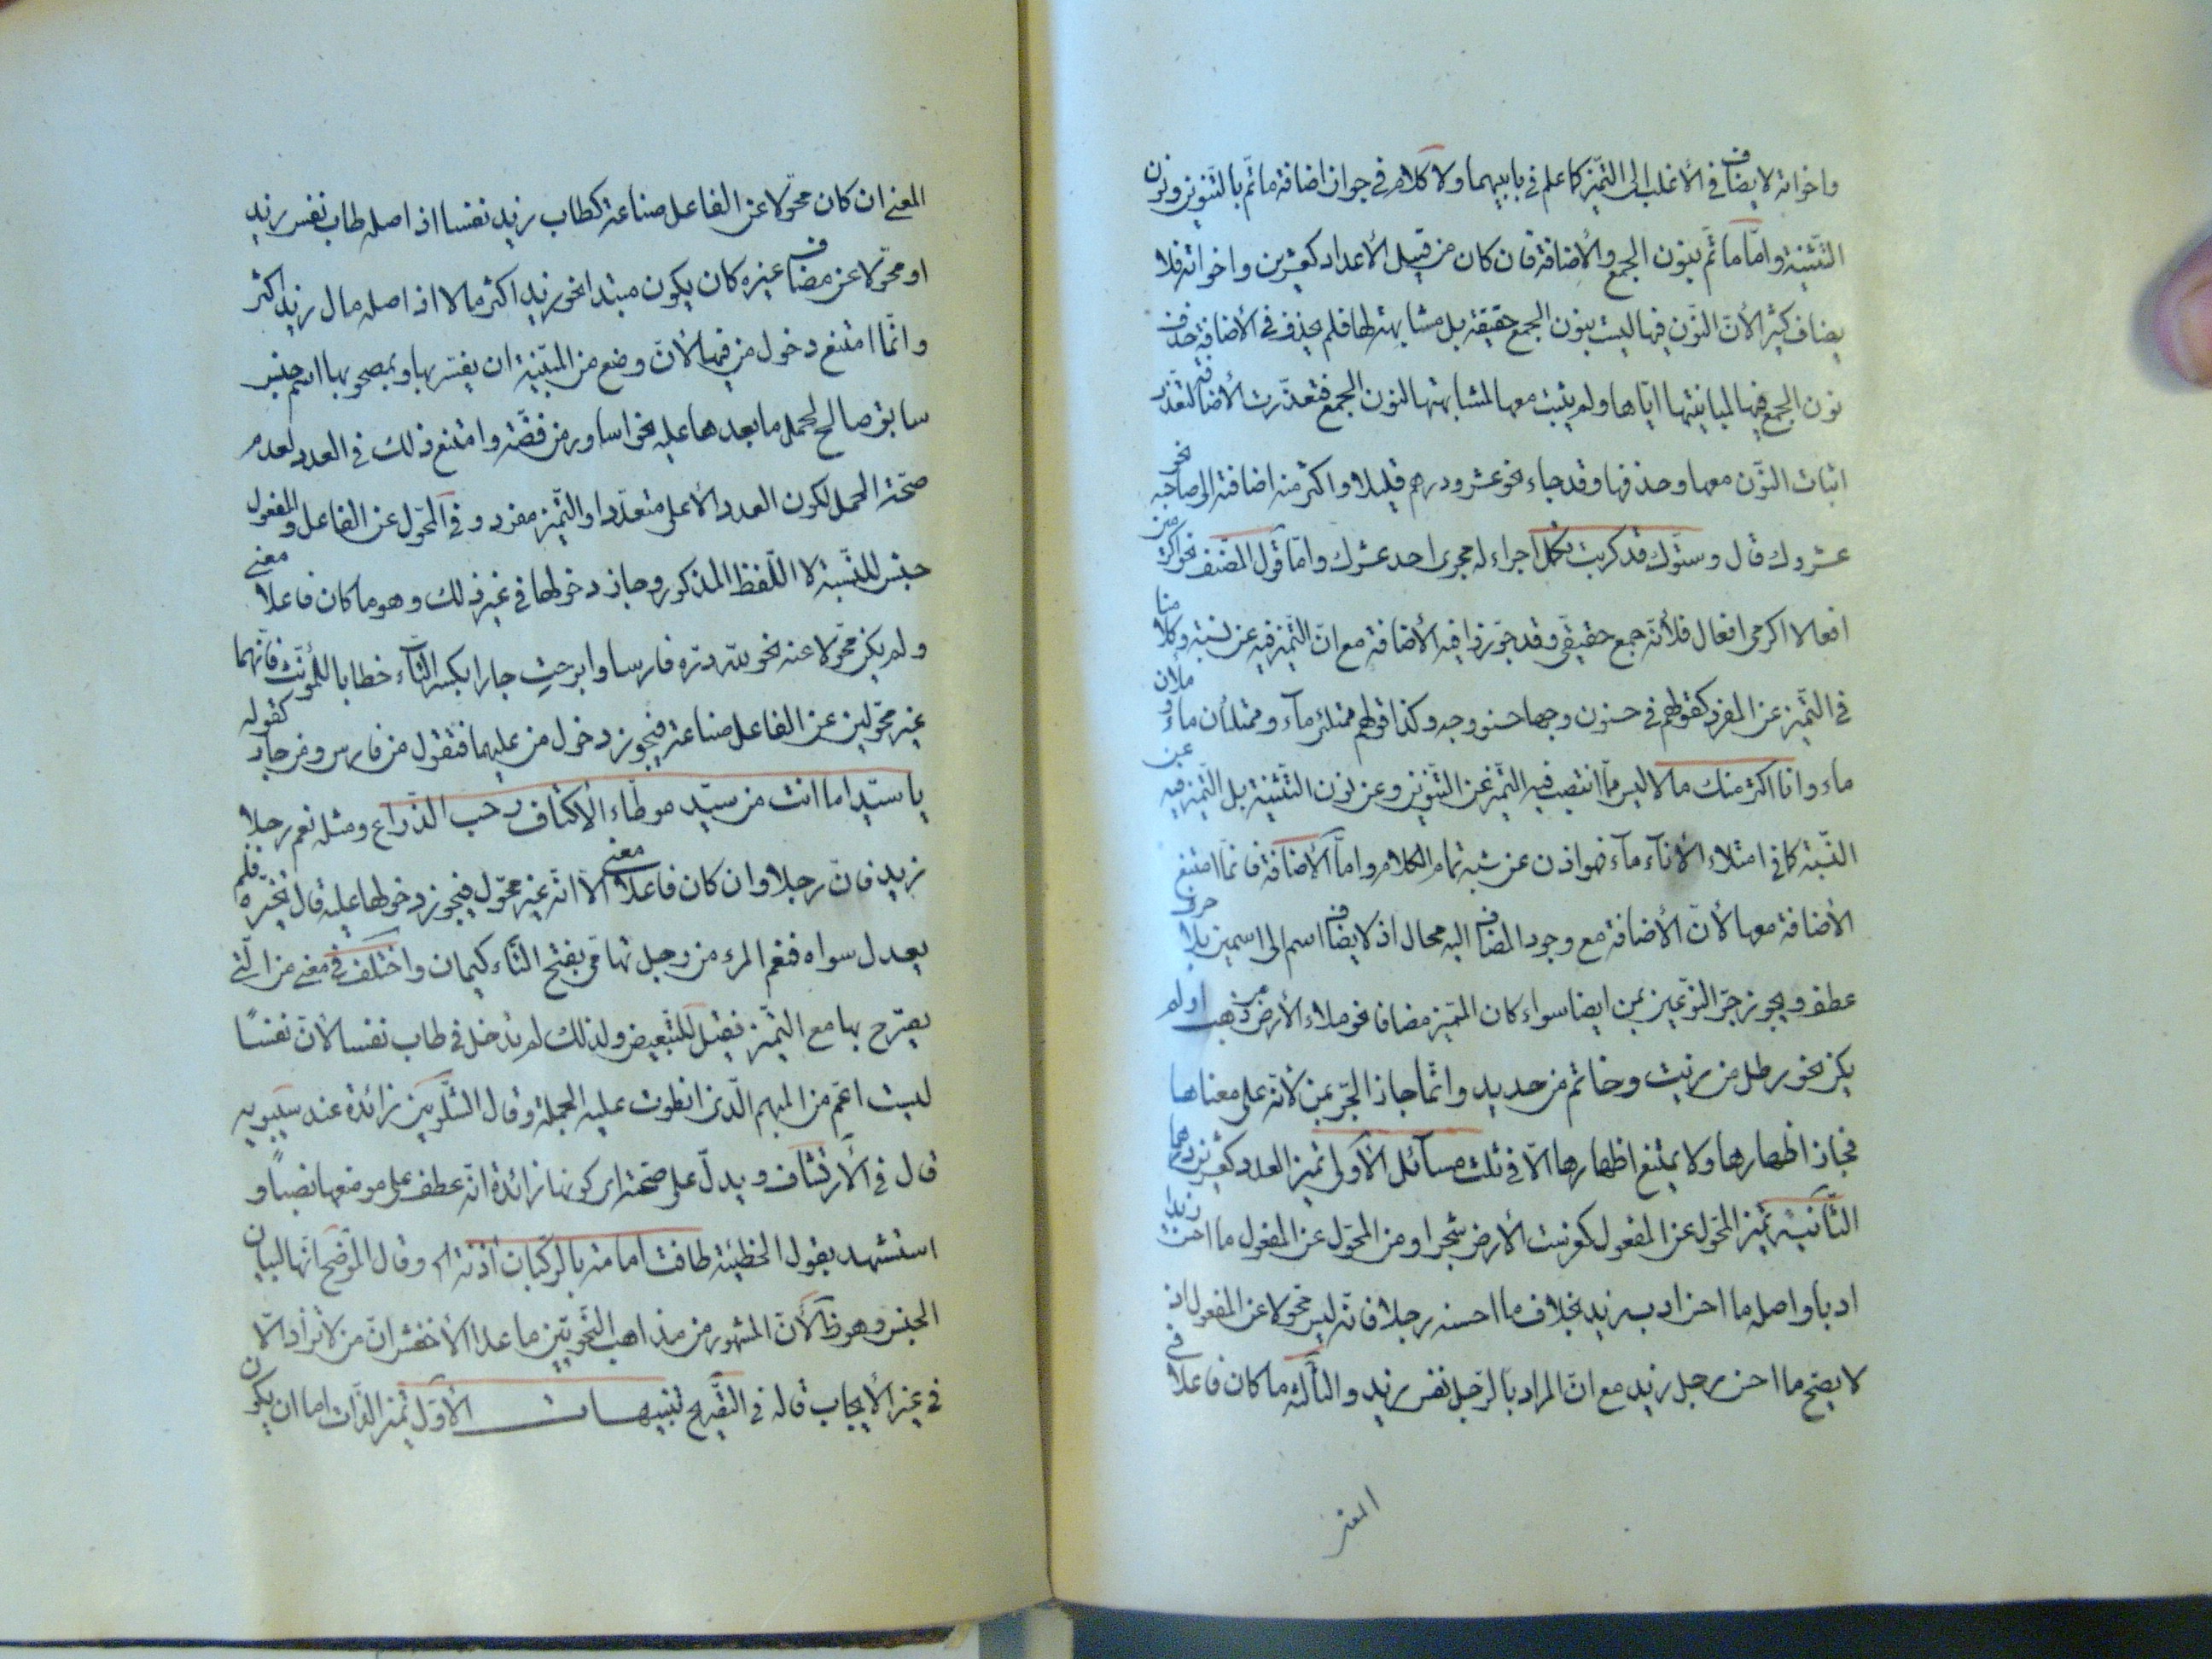 واخواته لا يضاف في الأغلب الى التّميز كما علم في بابيهما ولا كلام في جواز اضافة ما تمّ بالتّنوين ونون
التّثنية وامّا ما تمّ بنون الجمع والأضافة فان كان من قبيل الأعداد كعشرين واخواته فلا
يضاف كثيرا لأنّ النّون فيها ليست بنون الجمع حقيقة بل مشابهة لها فلم يحذف في الأضافة حذف
نون الجمع فيها لمباينتها ايّاها ولم يثبت معها لمشابهتها لنون الجمع فتعذّرت الأضافة لتعذّر
اثبات النّون معها وحذفها وقد جاء نحو عشرو درهم قليلا واكثر منه اضافته الى صاحبه نحو
عشروك قال وستّوك قد كربت تكمل اجراء له مجرى احد عشرك وامّا قول المصنف نحو اكثر من
افعالا اكرمى افعال فلأنّه جمع حقيقي وقد جوّزوا فيه الأضافة مع انّ التّميز فيه عن نسبة وكلامنا
في التّميز عن المفرد كقولهم في حسنون وجها حسنو وجه وكذا قولهم ممتلئ مآء وممتلأن ماء وملآن
ماء وانا اكثر منك مالا ليس ممّا انتصب فيه التّميز عن التّنوين وعن نون التّثنية بل التّميز فيه عن
النّسبة كما في امتلاء الأنآء مآء فهو اذن عن شبه تمام الكلام وامّا الأضافة فانّما امتنع
الأضافة معها لأنّ الأضافة مع وجود المضاف اليه محال اذ لا يضاف اسم الى اسمين بلا حرف
عطف ويجوز جرّ النّوعين بمن ايضا سواء كان المميّز مضافا نحو ملاء الأرض من ذهب او لم
يكن نحو رطل من زيت وخاتم من حديد وانّما جاز الجرّ بمن لأنّه على معناها
فجاز اظهارها ولا يمتنع اظهارها الّا في ثلث مسآئل الأولى تميز العدد كعشرين درهما
الثّانية تميز المحوّل عن المفعول كغرست الأرض شجرا ومن المحوّل عن المفعول ما احسن زيدا
ادبا واصله ما احسن ادب زيد بخلاف ما احسنه رجلا فانّه ليس محوّلا عن المفعول اذ
لا يصحّ ما احسن رجل زيد مع انّ المراد بالرّجل نفس زيد والثّالثة ما كان فاعلا في
المعنى
المعنى ان كان محوّلا عن الفاعل صناعة كطاب زيد نفسا اذ اصله طاب نفس زيد
او محوّلا عن مضاف غيره كان يكون مبتدا نحو زيد اكثر مالا اذ اصله مال زيد اكثر
وانّما امتنع دخول من فيها لأنّ وضع من المبيّنة ان يفسّر بها وبمصحوبها اسم جنس
سابق صالح لحمل ما بعدها عليه نحو اساور من فضّة وامتنع ذلك في العدد لعدم
صحّة الحمل لكون العدد الأعلى متعدّدا والتّميز مفرد وفي المحوّل عن الفاعل والمفعول
جنس للنّسبة لا اللّفظ المذكور وجاز دخولها في غير ذلك وهو ما كان فاعلا معنى
ولم يكن محوّلا عنه نحو للّه درّه فارسا وابرحتِ جارا بكسر التّآء خطابا للمؤنّث فانّهما
غير محوّلين عن الفاعل صناعة فيجوز دخول من عليهما فتقول من فارس ومن جار كقوله
يا سيّدا ما انت من سيّد موطّاء الاكناف رحب الذّراع ومثله نعم رجلا
زيد فانّ رجلا وان كان فاعلا معنى الّا انّه غير محوّل فيجوز دخولها عليه قال تخيّره فلم
يعدل سواه فنعم المرء من رجل تهامى بفتح التّاء كيمان واختلف في معنى من الّتي
يصرّح بها مع التّميز فقيل للتّبعيض ولذلك لم تدخل في طاب نفسا لأنّ نفسًا
ليست اعمّ من المبهم الّذى انطوت عليه الجملة وقال الشّلوبين زائدة عند سيبويه
قال في الأرتشاف ويدلّ على صحّته اى كونها زائدة انّه عطف على موضعها نصبًا و
استشهد بقول الحطيئة طافت امامة بالرّكبان آونة الخ وقال الموضح انّها لبيان
الجنس وهو ظ لأنّ المشهور من مذاهب النّحويّين ما عدا الأخفش انّ من لا تزاد الّا
في غير الأيجاب قاله في التّصريح تنبيهات الأوّل تميز الذّات اما ان يكون